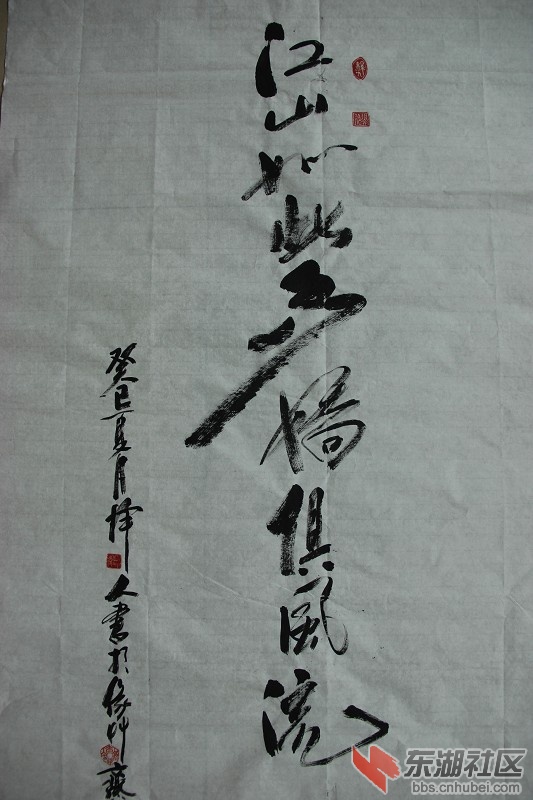 江山如此多娇俱风流
癸巳夏月 人书于
东湖社区
bbs.cnhubei.com